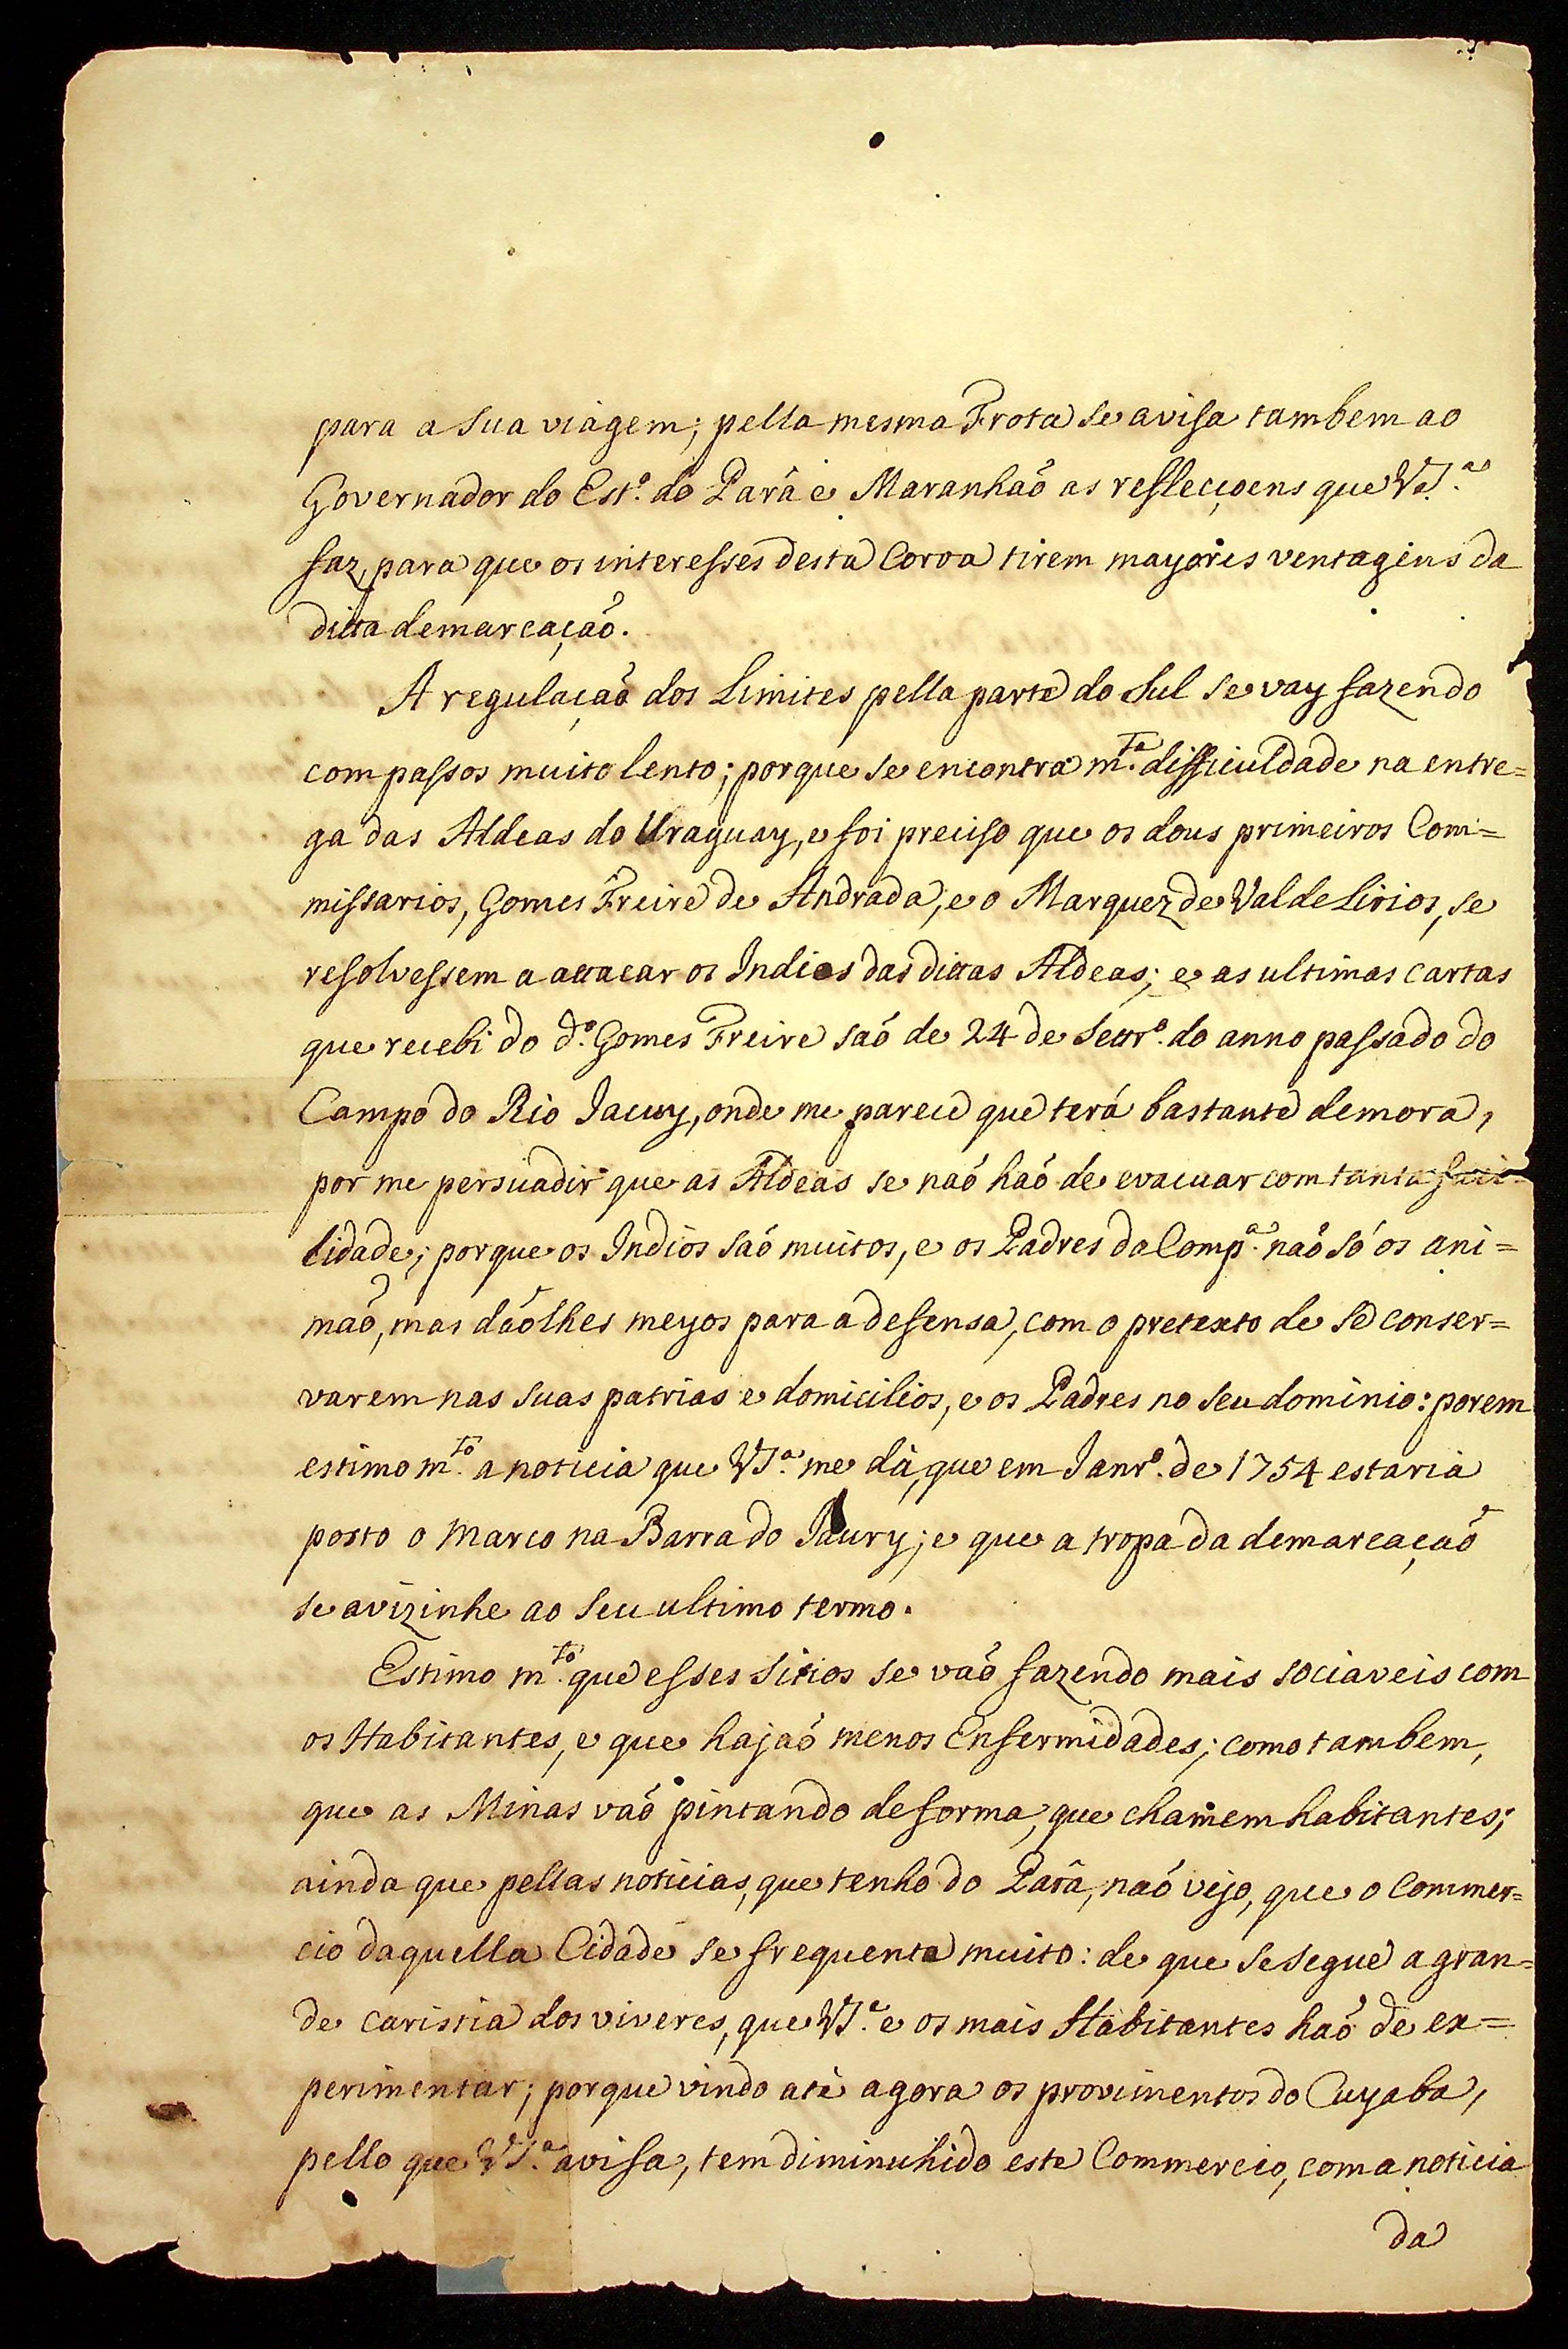 para a sua viagem; pella mesma Frota se avisa tambem ao
Governador do Est.º do Parâ e Maranhaõ as reflecçoens que V.S.ª
faz, para que os interesses desta Coroa tirem mayores ventagens da
ditta demarcaçaõ.
A regulaçaõ dos Limites pella parte do Sul se vay fazendo
com passos muito lento; porque se encontra m.ta difficuldade na entre=
ga das Aldeas do Uraguay, e foi preciso que os dous primeiros Com=
missarios, Gomes Freire de Andrada, e o Marquez de Val de Lirios, se
resolvessem a attacar os Indios das dittas Aldeas; e as ultimas cartas
que recebi do d.º Gomes Freire saõ de 24 de Settr.º do anno passado do
Campo do Rio Jacuy, onde me parece que terá bastante demora,
por me persuadir que as Aldeas se naõ haõ de evacuar com tanta faci=
lidade; porque os Indios saõ muitos, e os Padres da Comp.ª naõ só os ani=
maõ, mas daõlhes meyos para a defensa, com o pretexto de se conser=
varem nas suas patrias e domicilios, e os Padres no seu dominio: porem
estimo m.to a noticia que V.S.ª me dá, que em Janr.º de 1754 estaria
posto o Marco na Barra do Jaury; e que a tropa da demarcaçaõ
se avizinhe ao seu ultimo termo.
Estimo m.to que esses sitios se vaõ fazendo mais sociaveis com
os Habitantes, e que hajaõ menos Enfermidades; como tambem,
que as Minas vaõ pintando de forma, que chamem habitantes;
ainda que pellas noticias, que tenho do Parâ, naõ vejo, que o Commer=
cio daquella Cidade se frequenta muito: de que se segue a gran=
de caristia dos viveres, que V.S.ª e os mais Habitantes haõ de ex=
perimentar; porque vindo até agora os provimentos do Cuyaba,
pello que V.S.ª avisa, tem diminuhido este Commercio, com a noticia
da